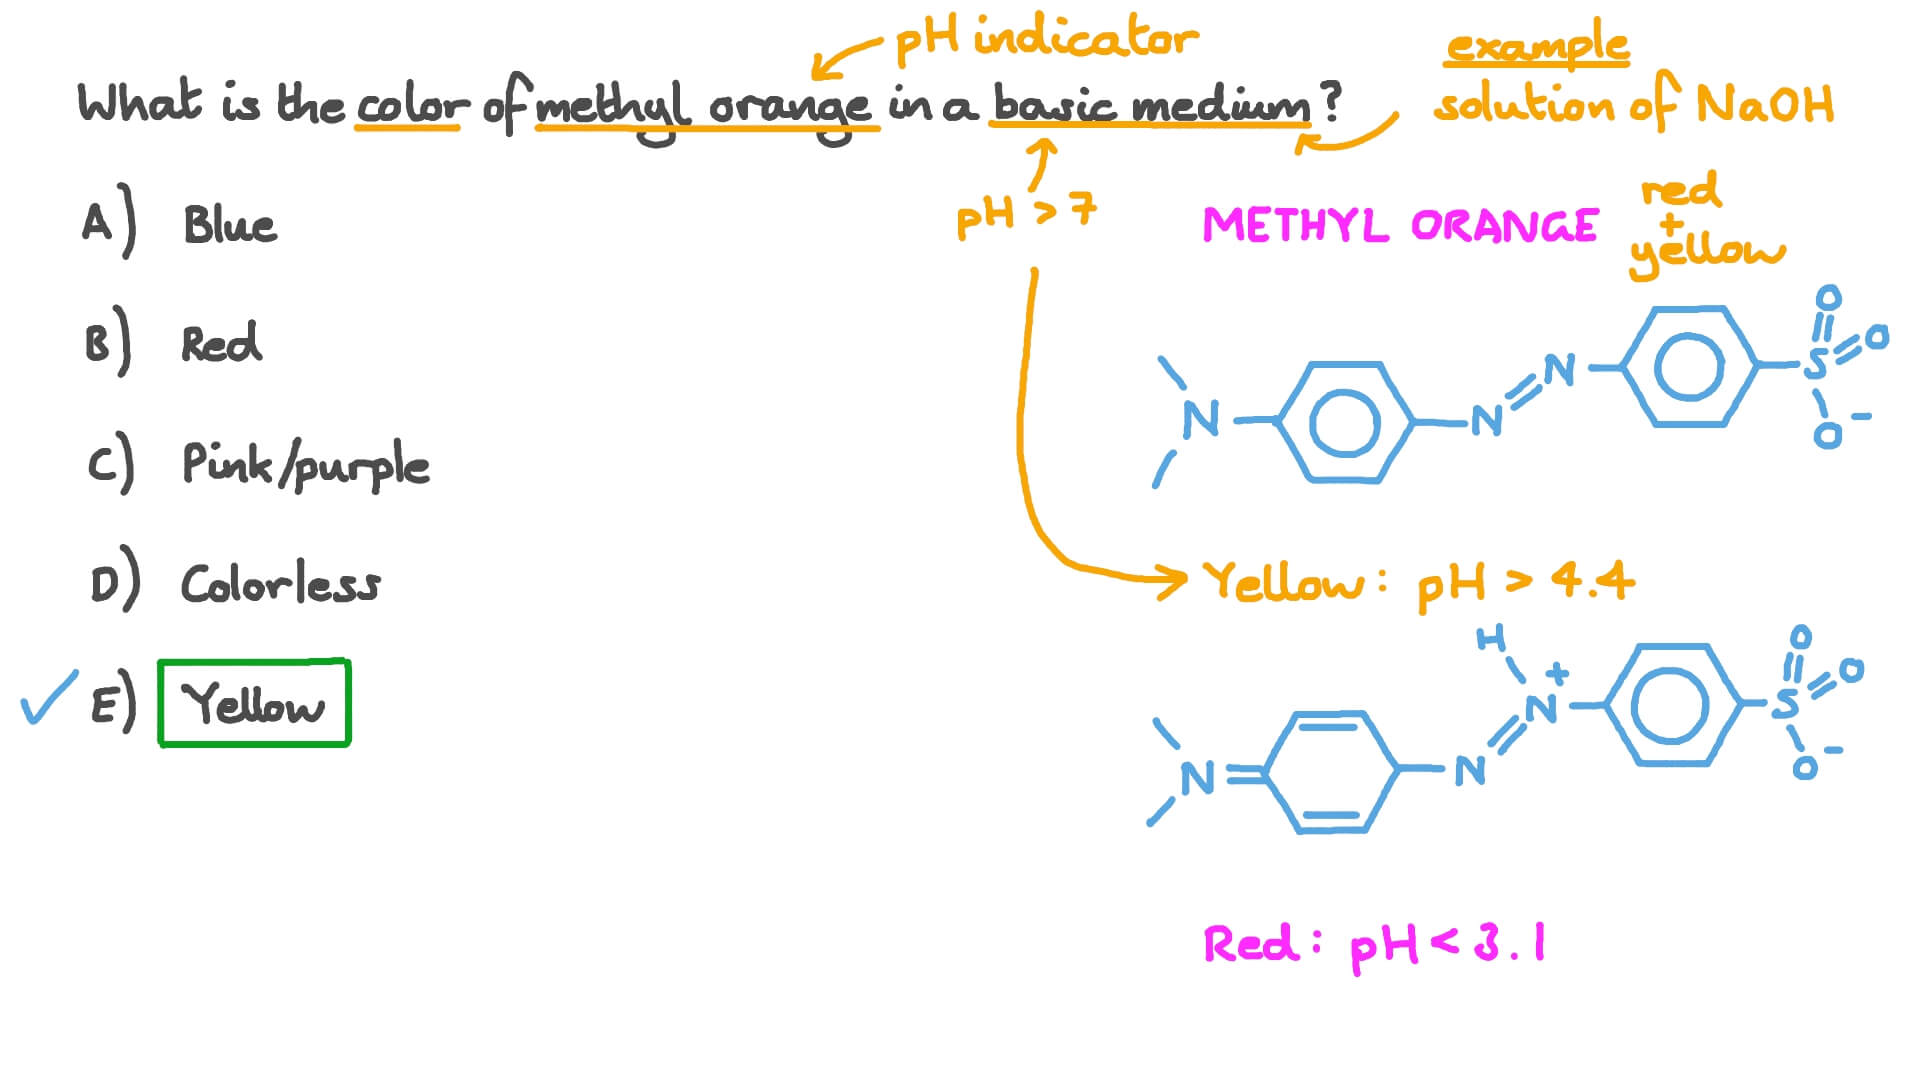 pH indicator
example
What is the color of methyl orange in a basic medium?
solution of NaOH
A) Blue
pH > 7
METHYL ORANGE
red
+
yellow
B) Red
C) Pink/purple
D) Colorless
E) Yellow
N
N
N
S
O
O
O
−
Yellow: pH > 4.4
H
+
N
N
N
S
O
O
O
−
Red: pH < 3.1